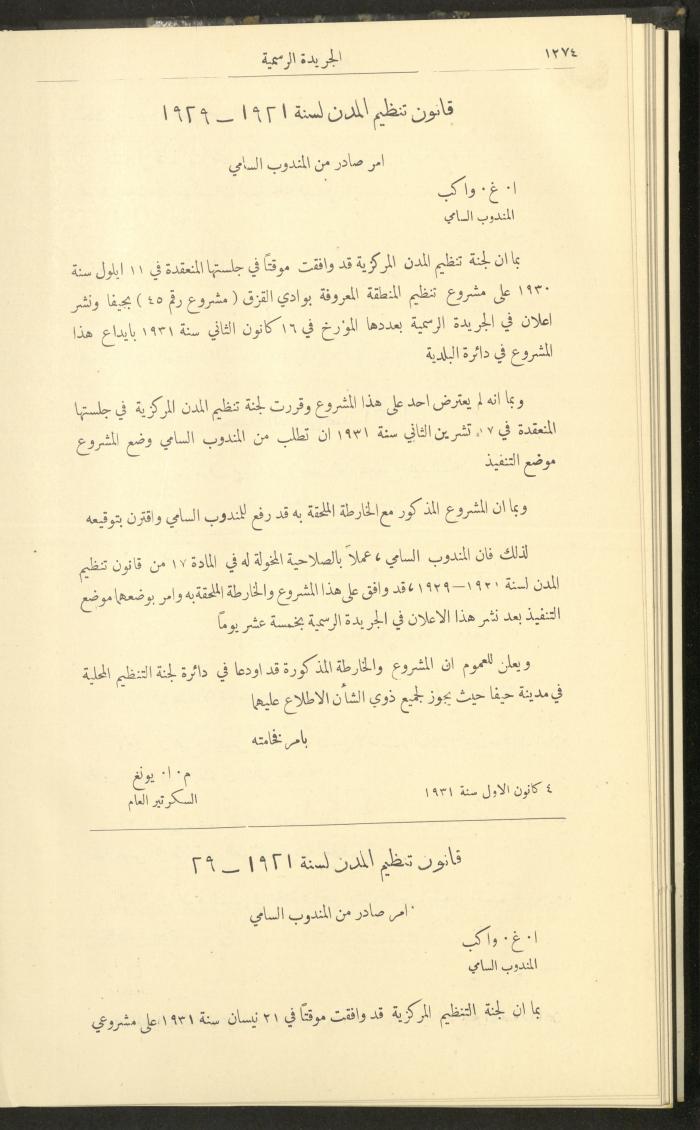 ١٢٧٤
الجريدة الرسمية
قانون تنظيم المدن لسنة ١٩٢١ ــ ١٩٢٩
امر صادر من المندوب السامي
ا٠ غ٠ واكب
المندوب السامي
بما ان لجنة تنظيم المدن المركزية قد وافقت موقتًا في جلستها المنعقدة في ١١ ايلول سنة
١٩٣٠ على مشروع تنظيم المنطقة المعروفة بوادي القزق (مشروع رقم ٤٥) بحيفا ونشر
اعلان في الجريدة الرسمية بعددها المؤرخ في ١٦ كانون الثاني سنة ١٩٣١ بايداع هذا
المشروع في دائرة البلدية
وبما انه لم يعترض احد على هذا المشروع وقررت لجنة تنظيم المدن المركزية في جلستها
المنعقدة في ١٧ تشرين الثاني سنة ١٩٣١ ان تطلب من المندوب السامي وضع المشروع
موضع التنفيذ
وبما ان المشروع المذكور مع الخارطة الملحقة به قد رفع للمندوب السامي واقترن بتوقيعه
لذلك فان المندوب السامي، عملاً بالصلاحية المخولة له في المادة ١٧ من قانون تنظيم
المدن لسنة ١٩٢١–١٩٢٩، قد وافق على هذا المشروع والخارطة الملحقة به وامر بوضعهما موضع
التنفيذ بعد نشر هذا الاعلان في الجريدة الرسمية بخمسة عشر يوماً
ويعلن للعموم ان المشروع والخارطة المذكورة قد اودعا في دائرة لجنة التنظيم المحلية
في مدينة حيفا حيث يجوز لجميع ذوي الشأن الاطلاع عليهما
بامر فخامته
م٠ ا٠ يونغ
السكرتير العام
٤ كانون الاول سنة ١٩٣١
قانون تنظيم المدن لسنة ١٩٢١ ــ ٢٩
امر صادر من المندوب السامي
ا٠ غ٠ واكب
المندوب السامي
بما ان لجنة التنظيم المركزية قد وافقت موقتًا في ٢١ نيسان سنة ١٩٣١ على مشروعي